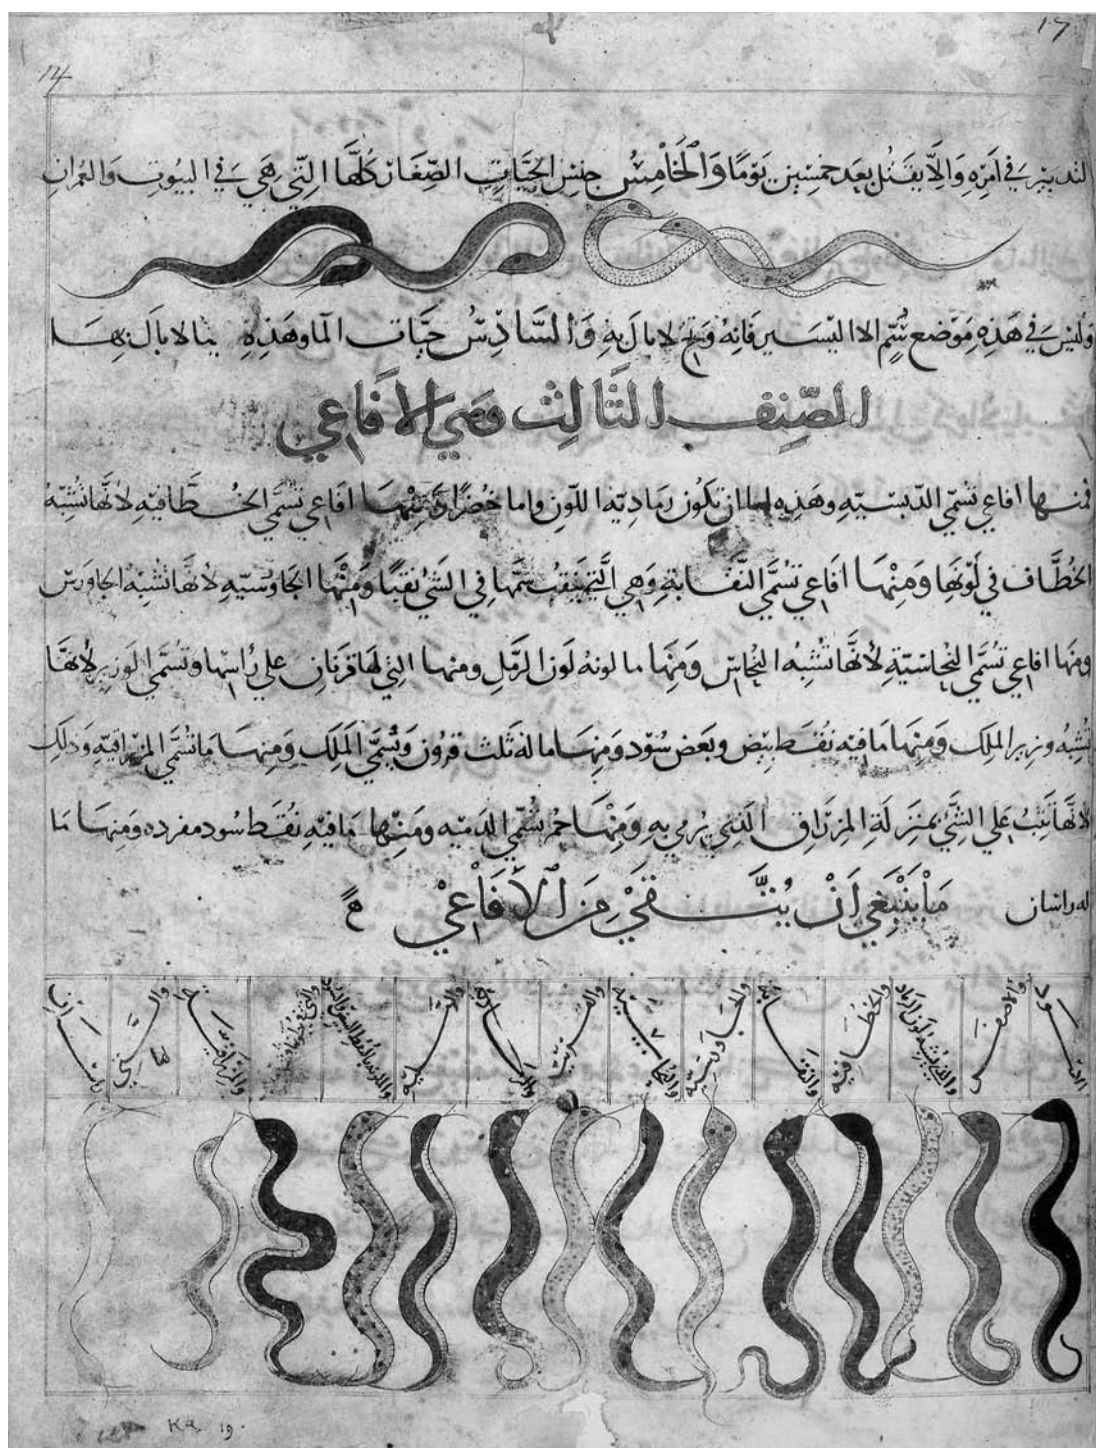 17
14
التدبير في امره والا يقتل بعد خمسين يومًا والخامس جنس الحيات الصغار كلها التي هي في البيوت والعمران
وليس في هذه موضع سم الا اليسير فانه وجع لا بال به والسادس حيات الما وهذه مما لا بال بها
الصنف الثالث وهي الافاعي
فمنها افاعي تسمي الدبسيه وهذه اما ان تكون رماديه اللون واما خضرا ومنها افاعي تسمي الخطافيه لانها تشبه
الخطاف في لونها ومنها افاعي تسمي النقابة وهي التي ينقب سمها في الشي نقبًا ومنها الجاورسيه لانها تشبه الجاورس
ومنها افاعي تسمي النحاسية لانها تشبه النحاس ومنها ما لونه لون الرمل ومنها التي لها قرنان علي راسها وتسمي الوزير لانها
تشبه وزير الملك ومنها ما فيه نقط بيض وبعض سود ومنها ما له ثلث قرون ويسمي الملك ومنها ما تسمي المزراقيه وذلك
لانها تثب علي الشي بمنزلة المزراق الذي يرمي به ومنها حمر تسمي الدميه ومنها ما فيه نقط سود مفرده ومنها ما
له راسان ما ينبغي ان ينتقي من الافاعي
الاسود
والاصفر
والتي تشبه لون الرماد
والخطافيه
والنقابة
والجاورسيه
والنحاسيه
والرمليه
والمزراقية
راسان
Ka 19.